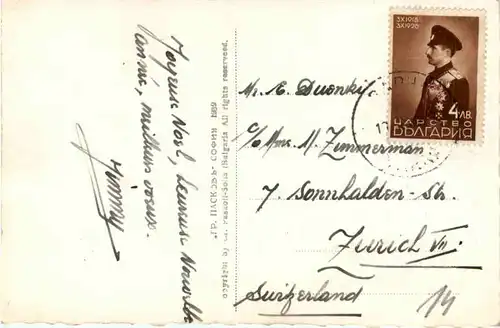 Joyeux Noël, heureuse Nouvelle
année, meilleurs voeux.
Jimmy
"ГР. ПАСКОВЪ" СОФИЯ 1939
Copyright by Gr. Paskoff-Sofia (Bulgaria) All rights reserved.
3X1918
3X1938
4ЛВ.
ЦАРСТВО
БЪЛГАРИЯ
Mr.
c/o Mme. M. Zimmerman
7. Sonnhalden-Str.
Zurich VII.
Switzerland